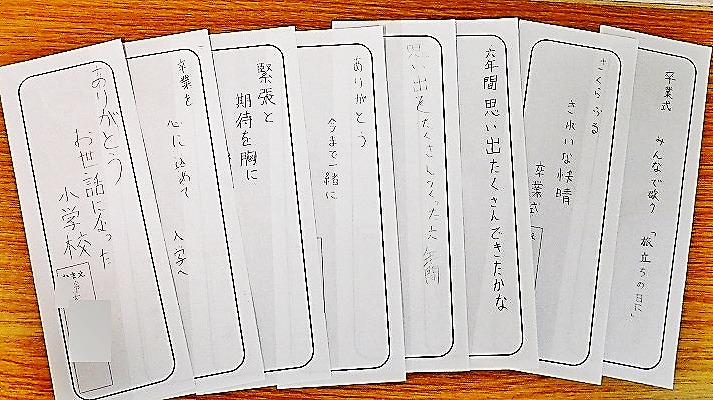 卒業式
みんなで歌う
「旅立ちの日に」
さくらぶる
きれいな快晴
卒業式
六年間 思い出たくさんできたかな
思い出をたくさんつくった六年間
ありがとう
今まで一緒に
緊張と
期待を胸に
卒業を
心に込めて
入学へ
ありがとう
お世話になった
小学校